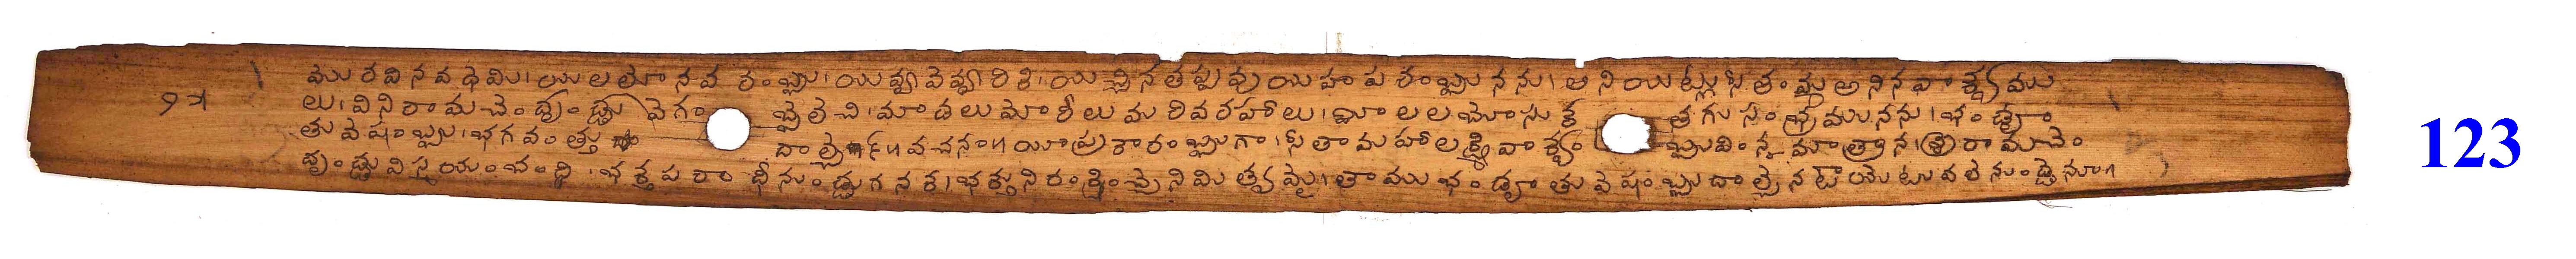 మురవినవథెమి। యిలలొనవ రంబ్బు। యివ్వవెవ్వరికి। యిచ్చినతప్పవు యిహపరంబ్బునను। అనియిట్లు సీతంమ్మ అనినవాక్యము
లు। వినిరామచెంద్రుండ్డు వెగం బ్బెలెచి। మాడలుమొరీలు మరివరహాలు। మాలలచూసుక తగుసంభ్రమునను। భండ్రాం
తువెషంబ్బు। భగవంత్తు దాల్చె ౹౹ వచనం౹౹ యీప్రకారంబ్బుగా। సీతామహాలక్ష్మి వాక్యం బ్బువింన్న మాత్రాన। శ్రీరామచెం
ద్రుండ్డు విస్మయంబంది। భక్తపరాధీనుండ్డుగనక। భక్తునిరంక్షించ్చెనిమిత్వమ్మై। తాముభండ్రాతువెషంబ్బుదాల్చైనటి యెటువలెనుండ్డెనూ౹
123